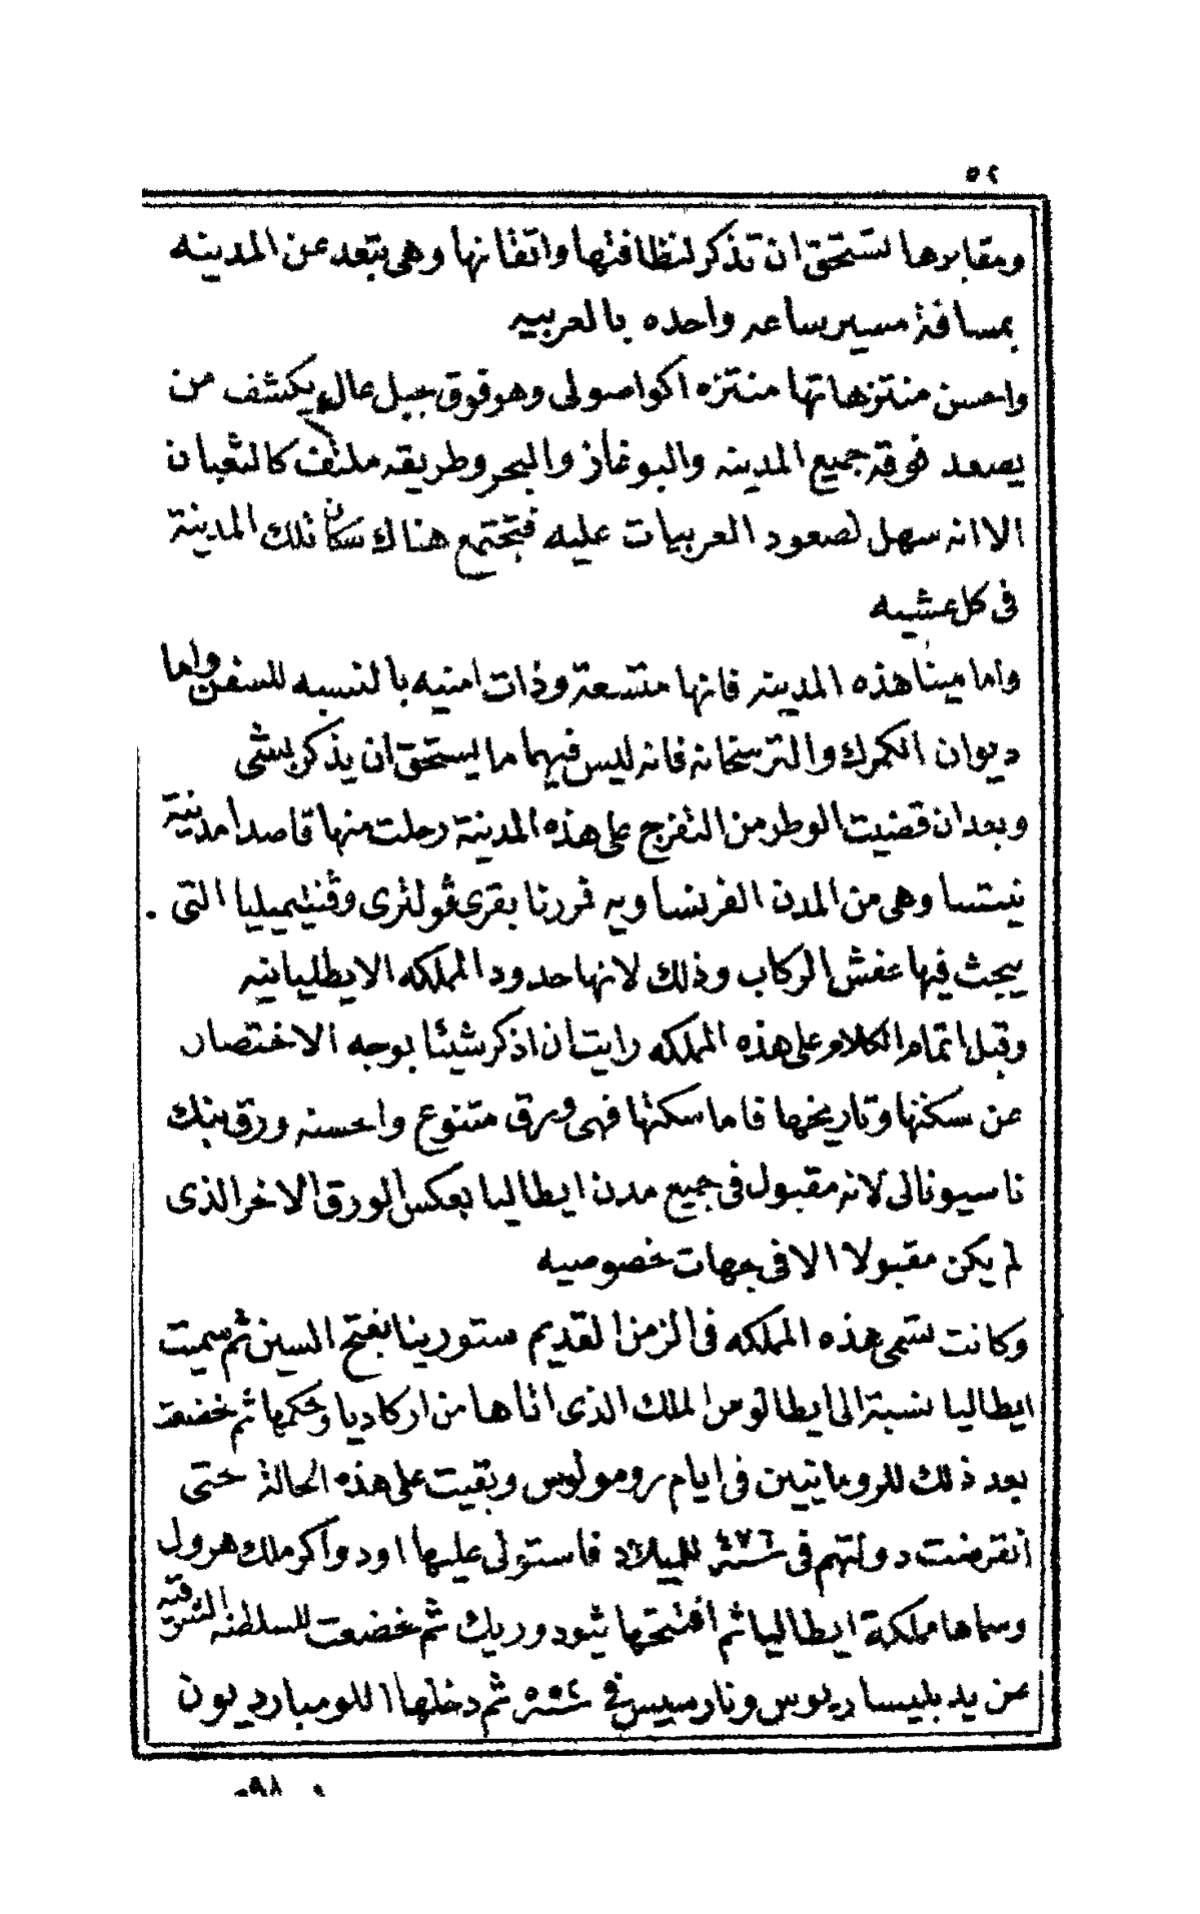 ٥٢
ومقابرها تستحق ان تذكر لنظافتها واتقانها وهى بتعد عن المدينه
بمسافة مسير ساعه واحده بالعربيه
واحسن منتزهاتها منتزه اكواصولى وهو فوق جبل عال يكشف من
يصعد فوقه جميع المدينه والبوغاز والبحر وطريقه ملتف كالثعبان
الا انه سهل لصعود العربيات عليه فتجتمع هناك سكان تلك المدينة
فى كل عشيه
واما مينا هذه المدينه فانها متسعة وذات امنيه بالنسبه للسفن واما
ديوان الكمرك والترسخانه فانه ليس فيهما ما يستحق ان يذكر بشى
وبعد ان قضيت الوطر من التفرج على هذه المدينة رحلت منها قاصدا مدنية
نيتسا وهى من المدن الفرنسا ويه فررنا بقرى ڤولترى وڤنتيميليا التى
يبحث فيها عفش الركاب وذلك لانها حدود المملكه الايطليانيه
وقبل اتمام الكلام على هذه المملكه رايت ان اذكر شيئا بوجه الاختصار
عن سكتها وتاريخها فاما سكتها فهى ورق متنوع واحسنه ورق بنك
ناسيونالى لانه مقبول فى جميع مدن ايطاليا بعكس الورق الاخر الذى
لم يكن مقبولا الا فى جهات خصوصيه
وكانت تسمى هذه المملكه فى الزمن القديم ستورينا بفتح السين ثم سميت
ايطاليا نسبة الى ايطالوس الملك الذى اتاها من اركاديا وحكمها ثم خضعت
بعد ذلك للرومانيين فى ايام رومولوس وبقيت على هذه الحالة حتى
انقرضت دولتهم فى سنة ٤٧٦ للميلاد فاستولى عليها اودواكر ملك هرول
وسماها مملكة ايطاليا ثم افتتحها ثيودوريك ثم خضعت للسلطنه الشرقيه
عن يد بليساريوس ونارسيس فى سنة ٥٥٢ ثم دخلها اللومبارديون